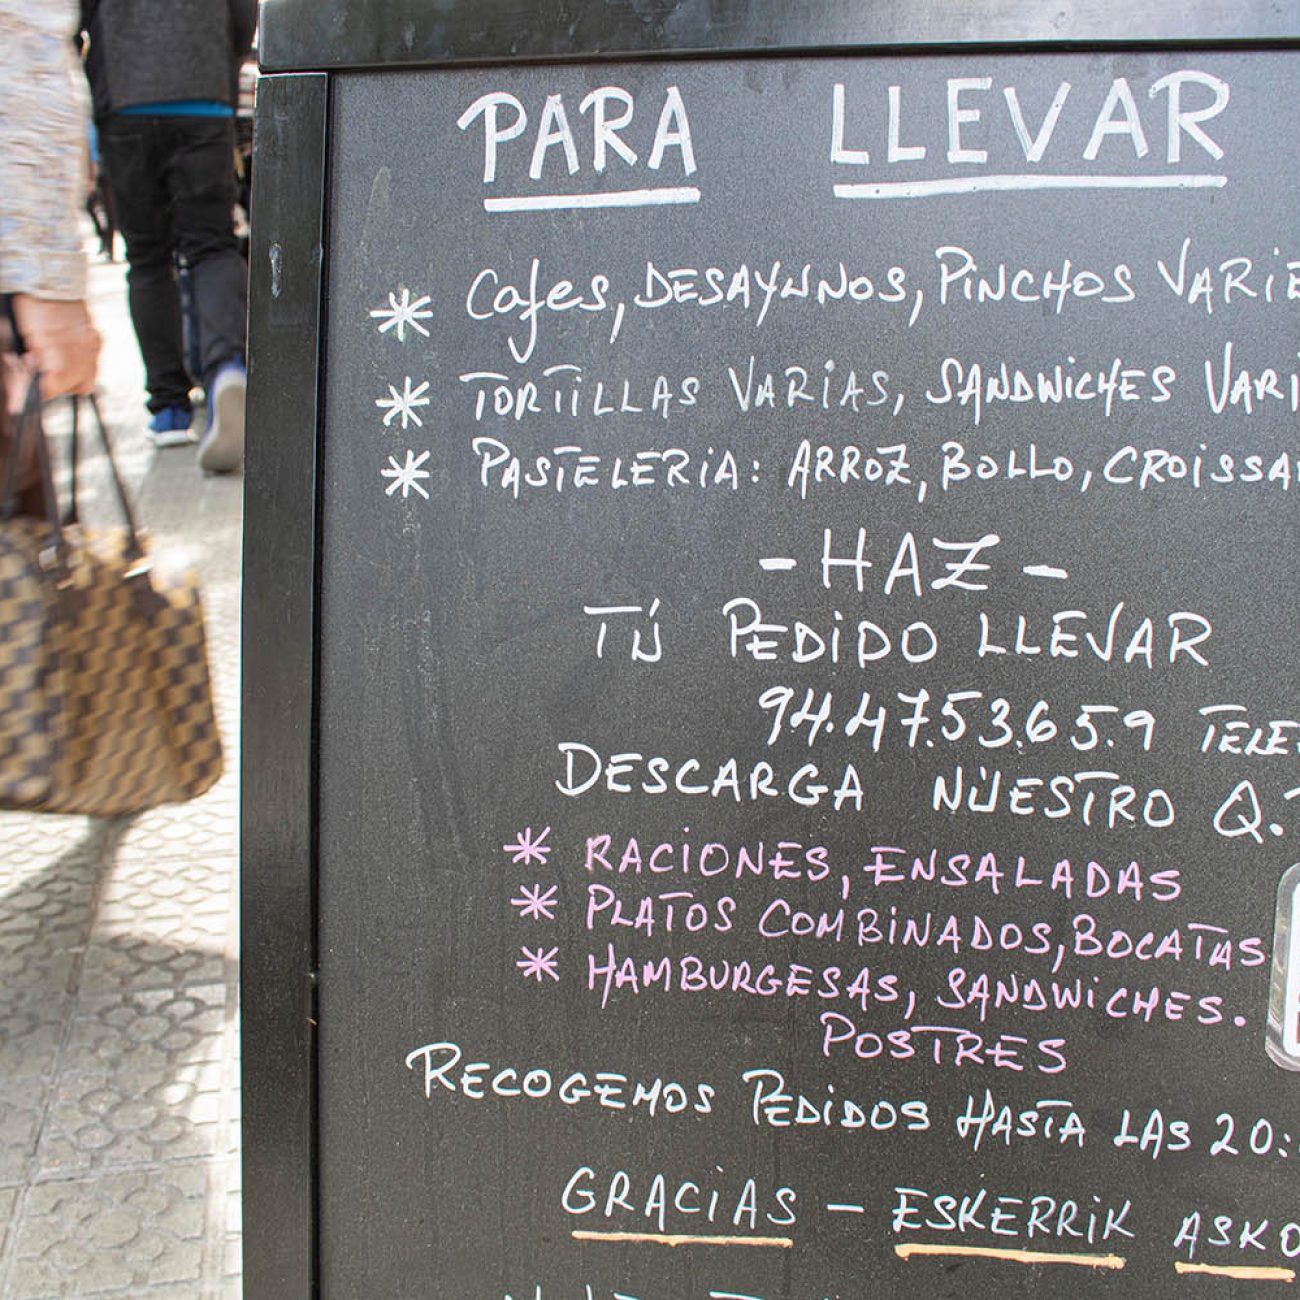 PARA LLEVAR
* Cafes, DESAYUNOS, PINCHOS VARIE
* TORTILLAS VARIAS, SANDWICHES VARI
* PASTELERIA: ARROZ, BOLLO, CROISSA
- HAZ -
TÚ PEDIDO LLEVAR
94.47.53.65.9 TELE
DESCARGA NUESTRO Q.
* RACIONES, ENSALADAS
* PLATOS COMBINADOS, BOCATAS
* HAMBURGESAS, SANDWICHES.
POSTRES
RECOGEMOS PEDIDOS HASTA LAS 20:
GRACIAS - ESKERRIK ASKO